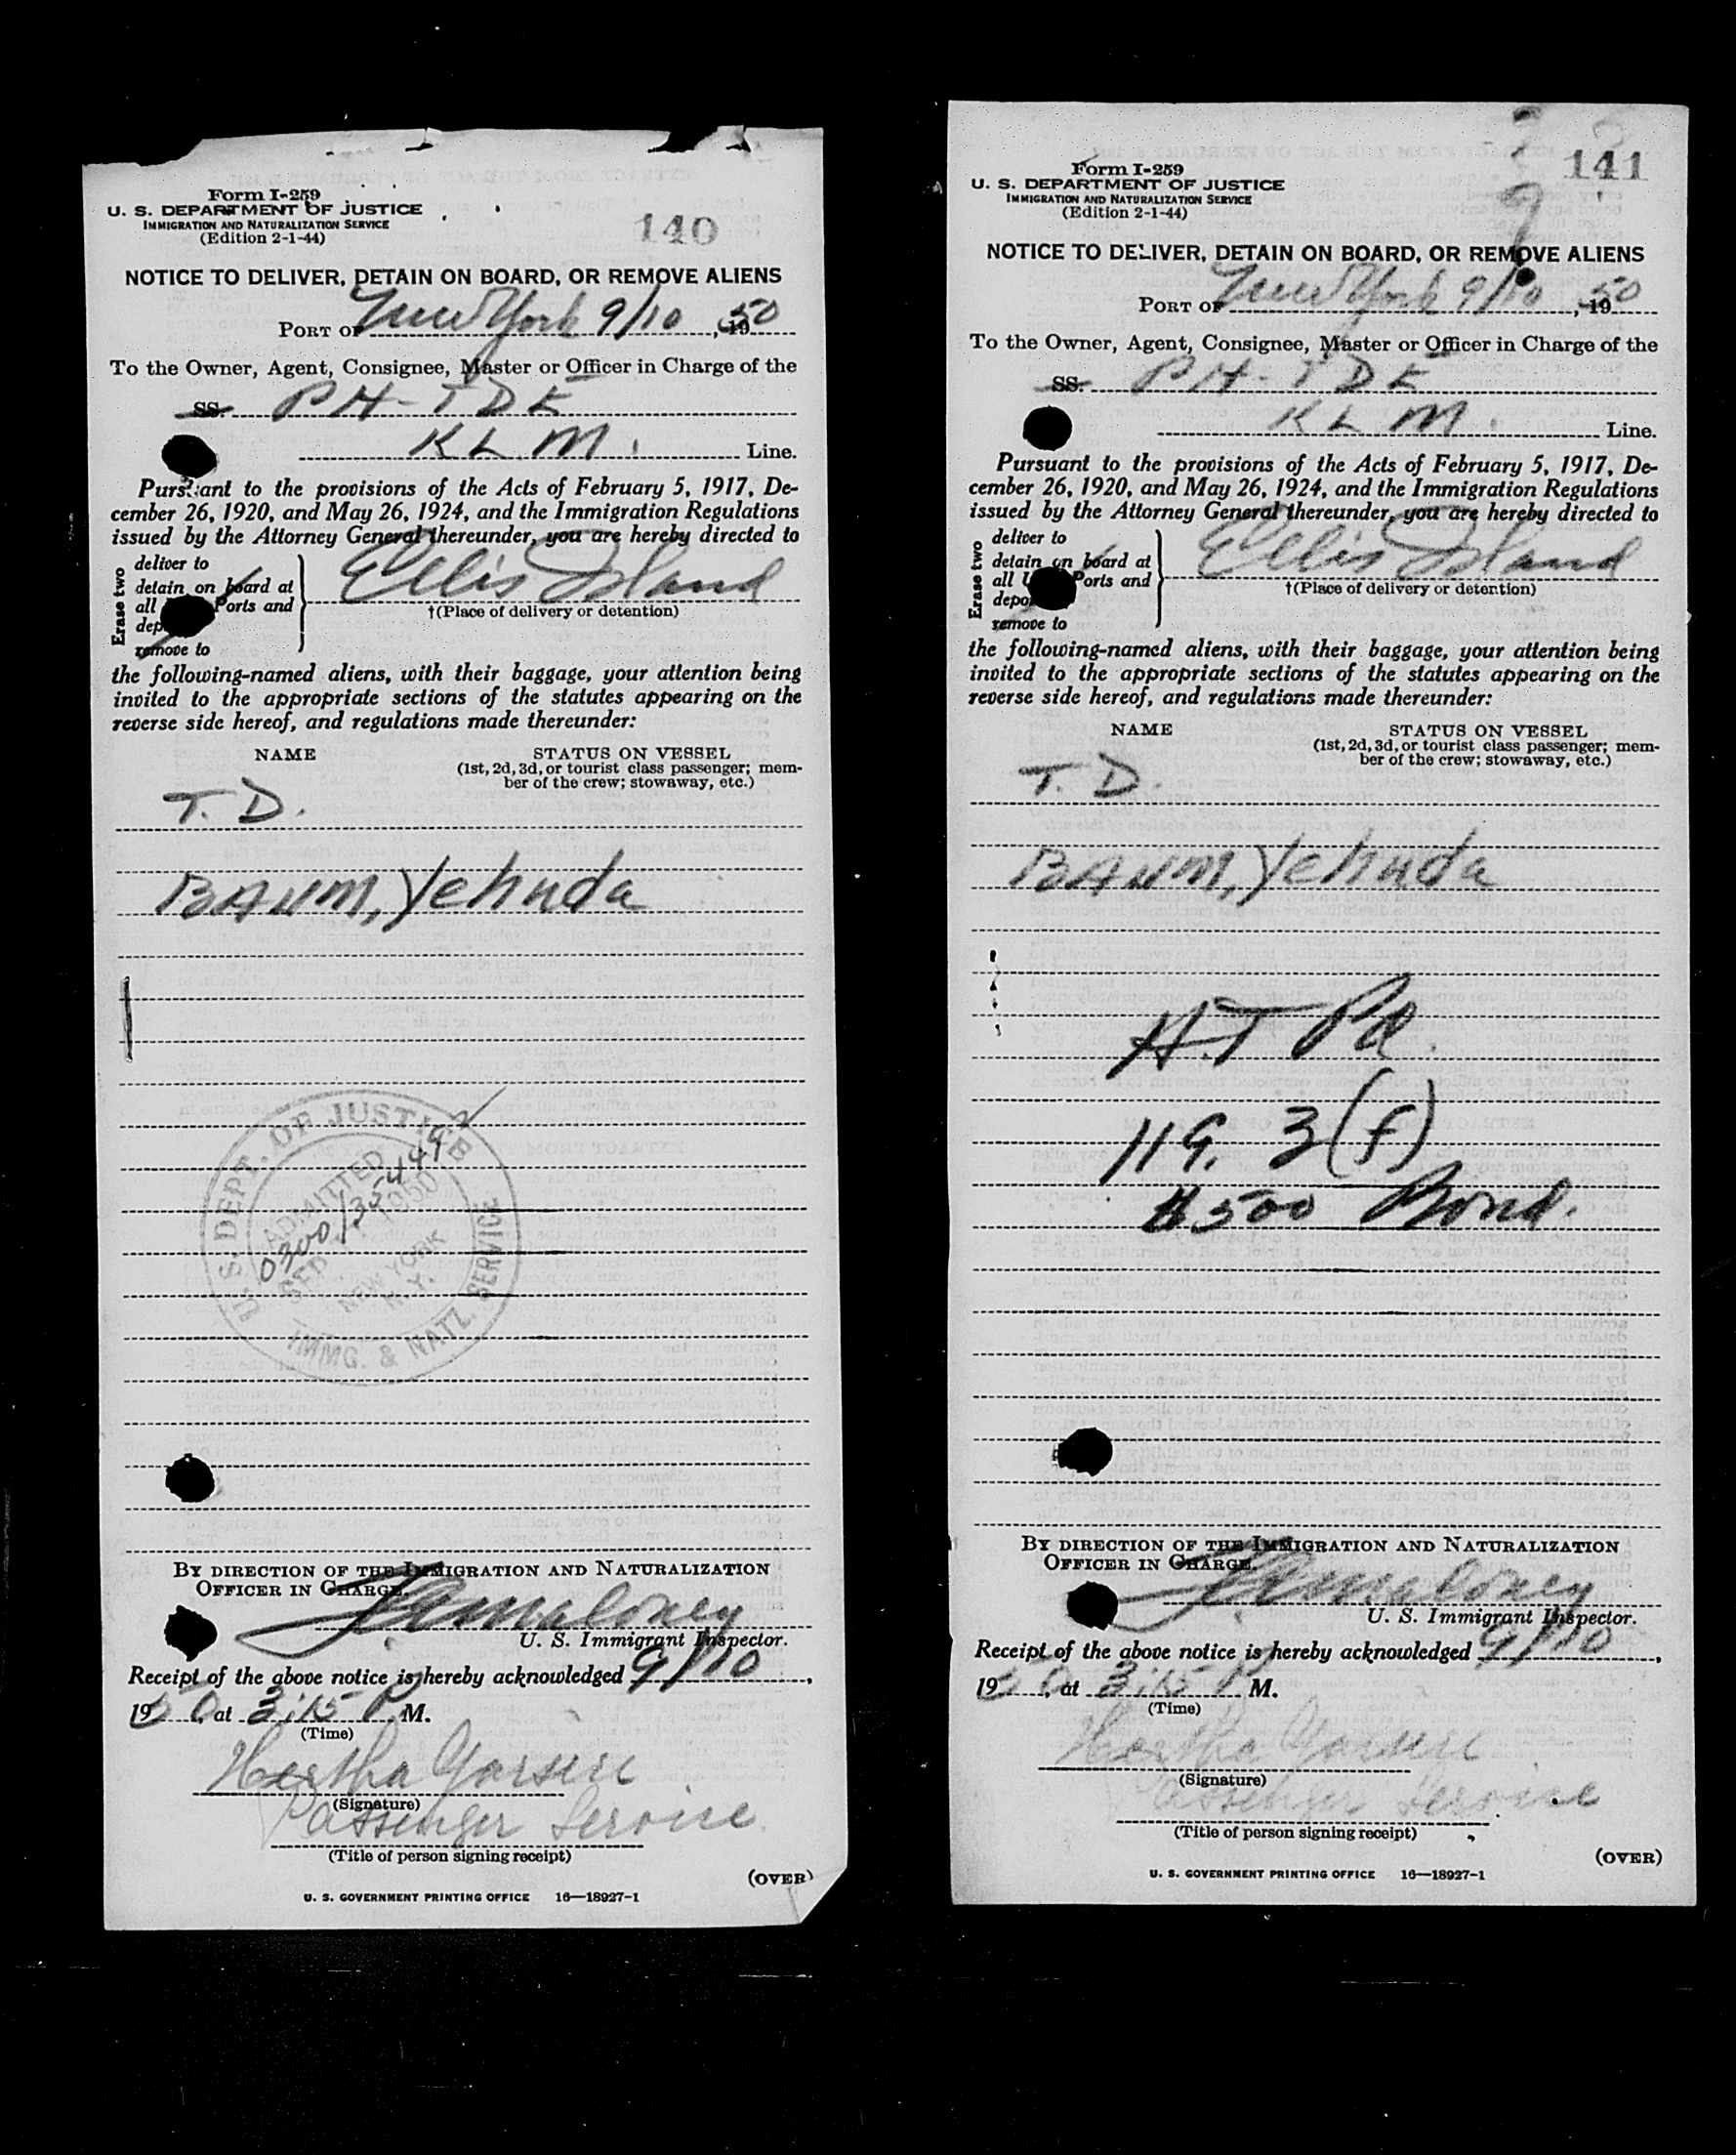 Form I-259
U. S. DEPARTMENT OF JUSTICE
IMMIGRATION AND NATURALIZATION SERVICE
(Edition 2-1-44)
140
NOTICE TO DELIVER, DETAIN ON BOARD, OR REMOVE ALIENS
PORT OF New York 9/10, 1950
To the Owner, Agent, Consignee, Master or Officer in Charge of the
SS. PH-TDK
KLM. Line.
Pursuant to the provisions of the Acts of February 5, 1917, De-
cember 26, 1920, and May 26, 1924, and the Immigration Regulations
issued by the Attorney General thereunder, you are hereby directed to
Erase two
deliver to
detain on board at
all Ports and
dep
remove to
Ellis Island
†(Place of delivery or detention)
the following-named aliens, with their baggage, your attention being
invited to the appropriate sections of the statutes appearing on the
reverse side hereof, and regulations made thereunder:
NAME STATUS ON VESSEL
(1st, 2d, 3d, or tourist class passenger; mem-
ber of the crew; stowaway, etc.)
T. D.
BAUM, Yehuda
U. S. DEPT. OF JUSTICE
ADMITTED
0300/35449
SEP 1950
NEW YORK
N. Y.
IMMG. & NATZ. SERVICE
BY DIRECTION OF THE IMMIGRATION AND NATURALIZATION
OFFICER IN CHARGE.
Maloney
U. S. Immigrant Inspector.
Receipt of the above notice is hereby acknowledged 9/10,
1950, at 3:15 P. M.
(Time)
Hertha
(Signature)
Passenger Service
(Title of person signing receipt)
(OVER)
U. S. GOVERNMENT PRINTING OFFICE 16—18927-1
Form I-259
U. S. DEPARTMENT OF JUSTICE
IMMIGRATION AND NATURALIZATION SERVICE
(Edition 2-1-44)
141
NOTICE TO DELIVER, DETAIN ON BOARD, OR REMOVE ALIENS
PORT OF New York 9/10, 1950
To the Owner, Agent, Consignee, Master or Officer in Charge of the
SS. PH-TDK
KLM. Line.
Pursuant to the provisions of the Acts of February 5, 1917, De-
cember 26, 1920, and May 26, 1924, and the Immigration Regulations
issued by the Attorney General thereunder, you are hereby directed to
Erase two
deliver to
detain on board at
all U Ports and
depo
remove to
Ellis Island
†(Place of delivery or detention)
the following-named aliens, with their baggage, your attention being
invited to the appropriate sections of the statutes appearing on the
reverse side hereof, and regulations made thereunder:
NAME STATUS ON VESSEL
(1st, 2d, 3d, or tourist class passenger; mem-
ber of the crew; stowaway, etc.)
T. D.
BAUM, Yehuda
H.T Pd.
119. 3(f)
$500 Bond.
BY DIRECTION OF THE IMMIGRATION AND NATURALIZATION
OFFICER IN CHARGE.
Maloney
U. S. Immigrant Inspector.
Receipt of the above notice is hereby acknowledged 9/10,
1950, at 3:15 P M.
(Time)
Hertha
(Signature)
Passenger Service
(Title of person signing receipt)
(OVER)
U. S. GOVERNMENT PRINTING OFFICE 16—18927-1